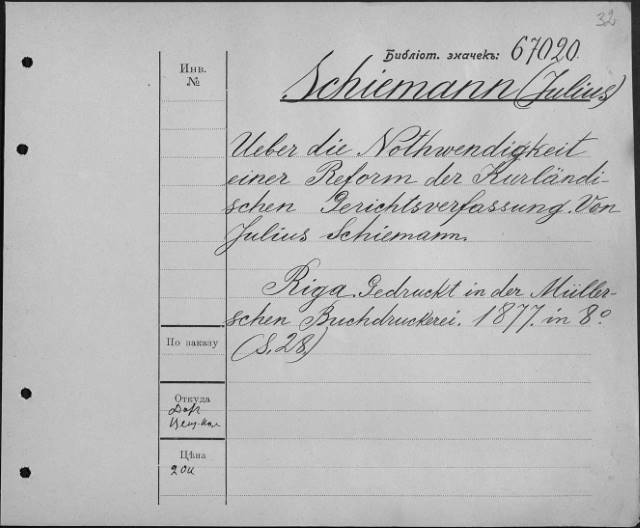 32
Библіот. значекъ: 67020.
Инв.
№
Schiemann (Julius)
Ueber die Nothwendigkeit
einer Reform der Kurländi-
schen Gerichtsverfassung. Von
Julius Schiemann.
Riga. Gedruckt in der Müller-
schen Buchdruckerei. 1877. in 8º
(S. 28.)
По заказу
Откуда
Цѣна